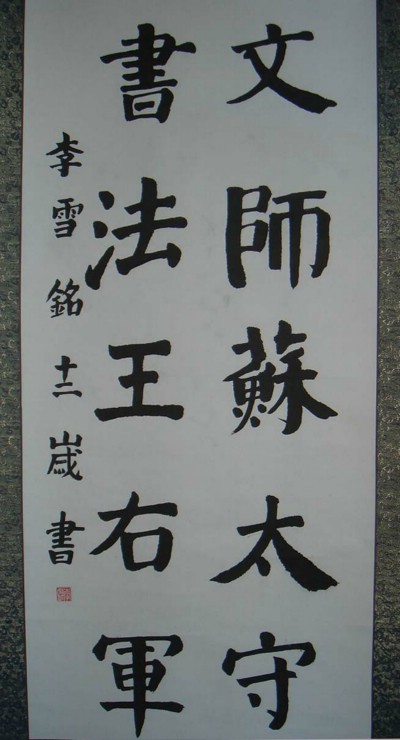 文師蘇太守
書法王右軍
李雪銘十二歲書